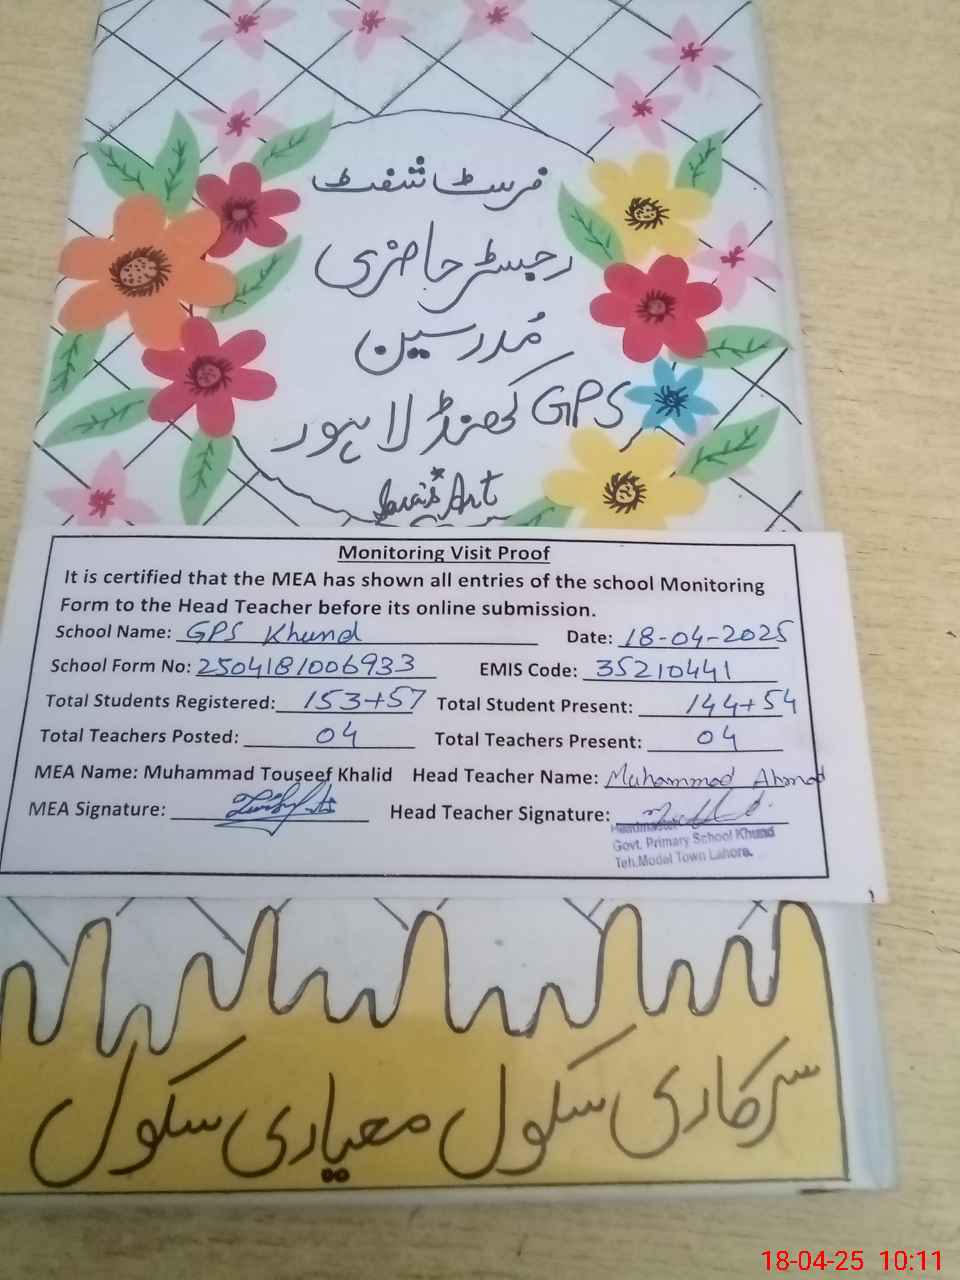 فرسٹ شفٹ
رجسٹر حاضری
مُدرسین
GPS کھنڈ لاہور
Art
Monitoring Visit Proof
It is certified that the MEA has shown all entries of the school Monitoring
Form to the Head Teacher before its online submission.
School Name: GPS Khund Date: 18-04-2025
School Form No: 2504181006933 EMIS Code: 35210441
Total Students Registered: 153+57 Total Student Present: 144+54
Total Teachers Posted: 04 Total Teachers Present: 04
MEA Name: Muhammad Touseef Khalid Head Teacher Name: Muhammad Ahmad
MEA Signature: Head Teacher Signature:
Headmaster
Govt. Primary School Khund
Teh.Model Town Lahore.
سرکاری سکول معیاری سکول
18-04-25 10:11